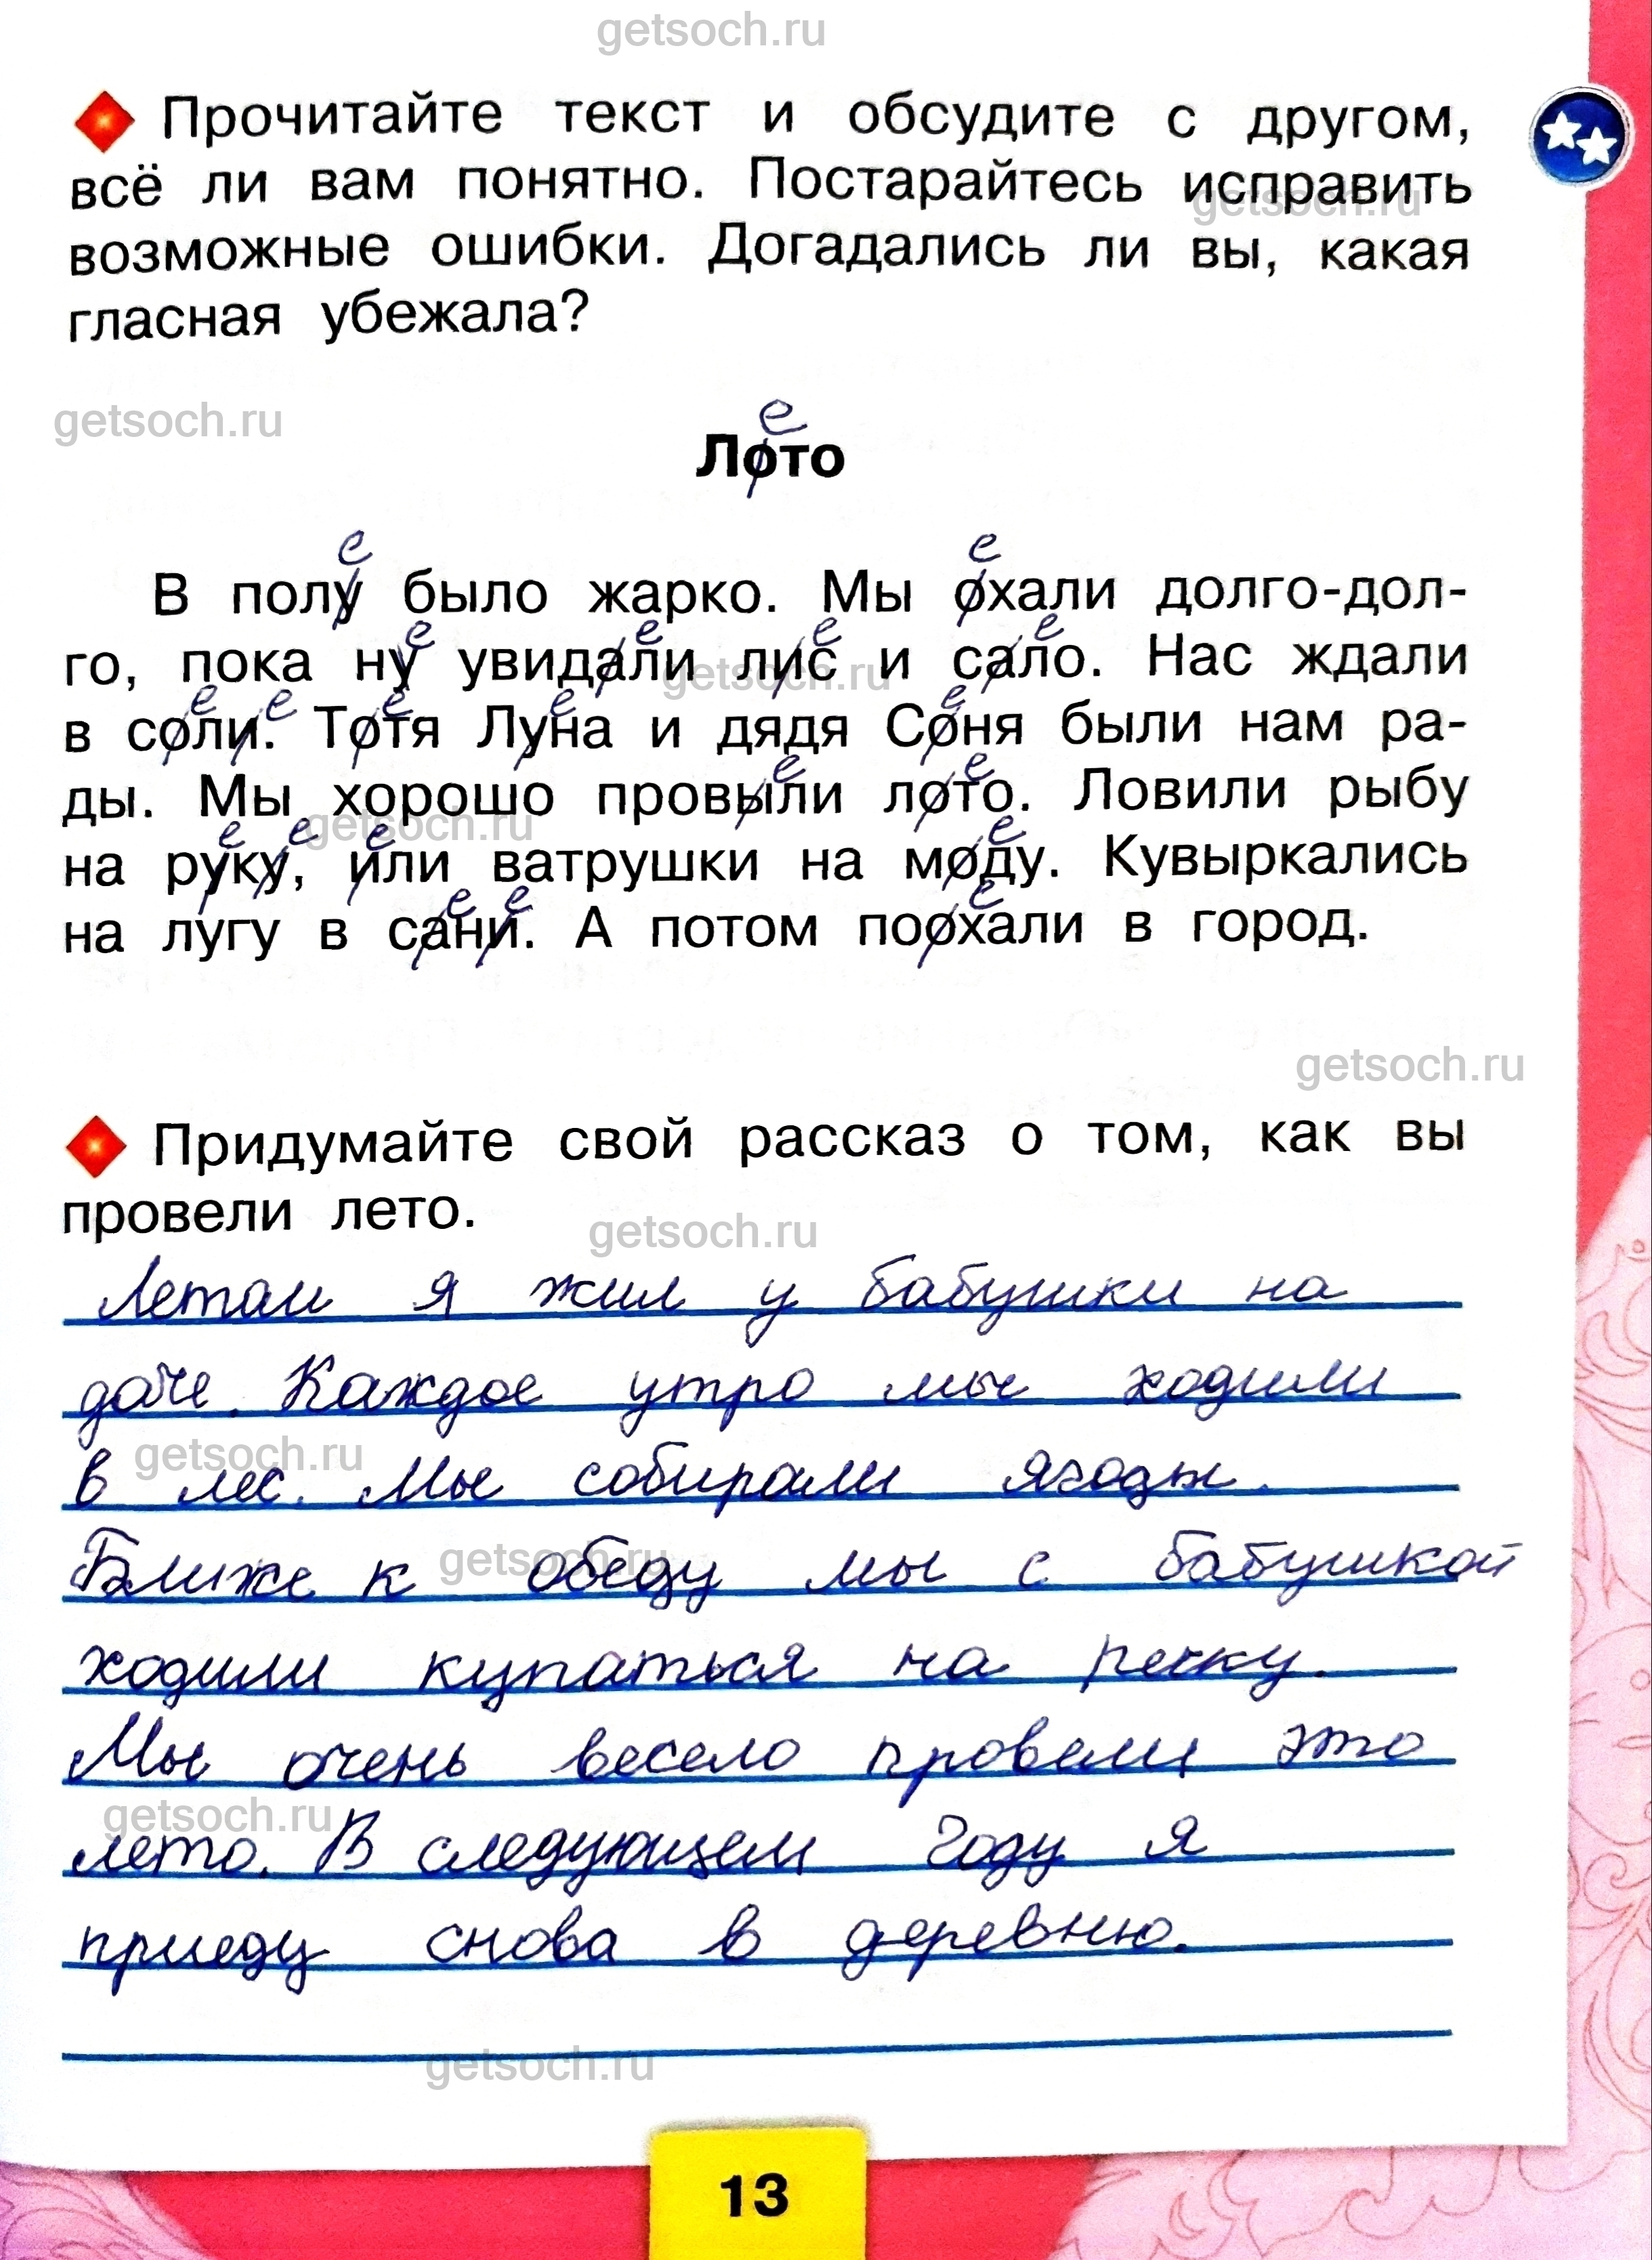 getsoch.ru
Прочитайте текст и обсудите с другом,
всё ли вам понятно. Постарайтесь исправить
getsoch.ru
возможные ошибки. Догадались ли вы, какая
гласная убежала?
getsoch.ru
е
Лото
е е
В полу было жарко. Мы охали долго-дол-
е е е е
го, пока ну увидали лис и сало. Нас ждали
getsoch.ru
е е е е е
в соли. Тотя Луна и дядя Соня были нам ра-
е е
ды. Мы хорошо провыли лото. Ловили рыбу
getsoch.ru
е е е е
на руку, или ватрушки на моду. Кувыркались
е е е
на лугу в сани. А потом поохали в город.
getsoch.ru
Придумайте свой рассказ о том, как вы
провели лето.
getsoch.ru
Летом я жил у бабушки на
даче. Каждое утро мы ходили
getsoch.ru
в лес. Мы собирали ягоды.
getsoch.ru
Ближе к обеду мы с бабушкой
ходили купаться на речку.
Мы очень весело провели это
getsoch.ru
лето. В следующем году я
приеду снова в деревню.
getsoch.ru
13